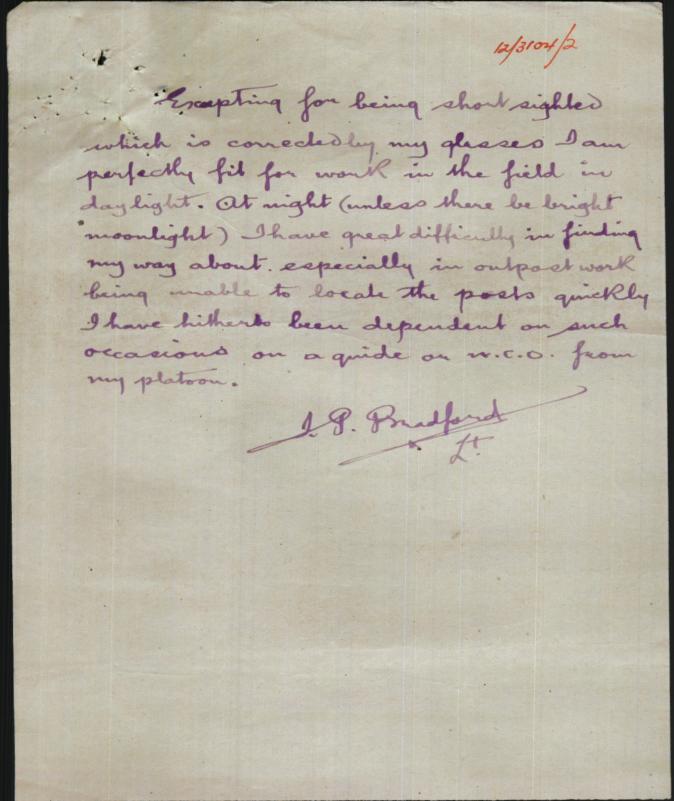 12/3104/2
Excepting for being short sighted
which is corrected by my glasses I am
perfectly fit for work in the field in
daylight. At night (unless there be bright
moonlight) I have great difficulty in finding
my way about. especially in outpost work
being unable to locate the posts quickly
I have hitherto been dependent on such
occasions on a guide or N.C.O. from
my platoon.
I. P. Bradford
Lt.